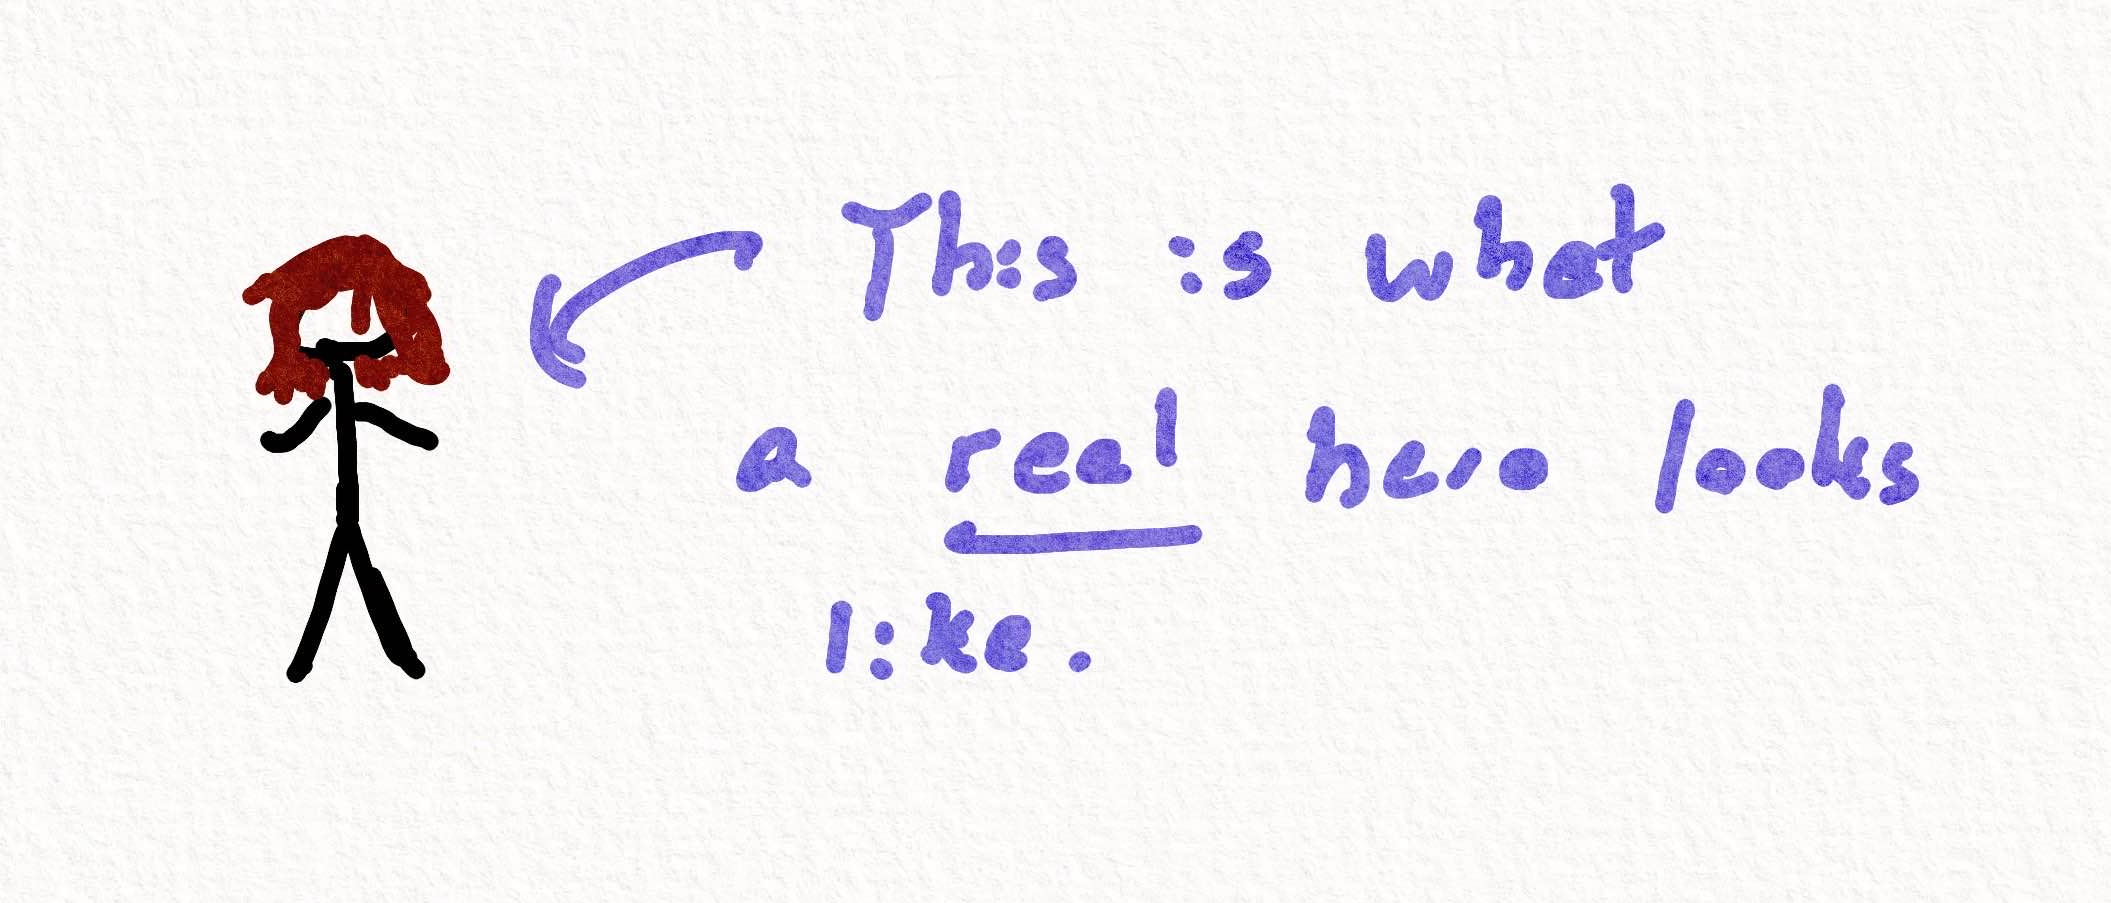 This is what
a real hero looks
like.